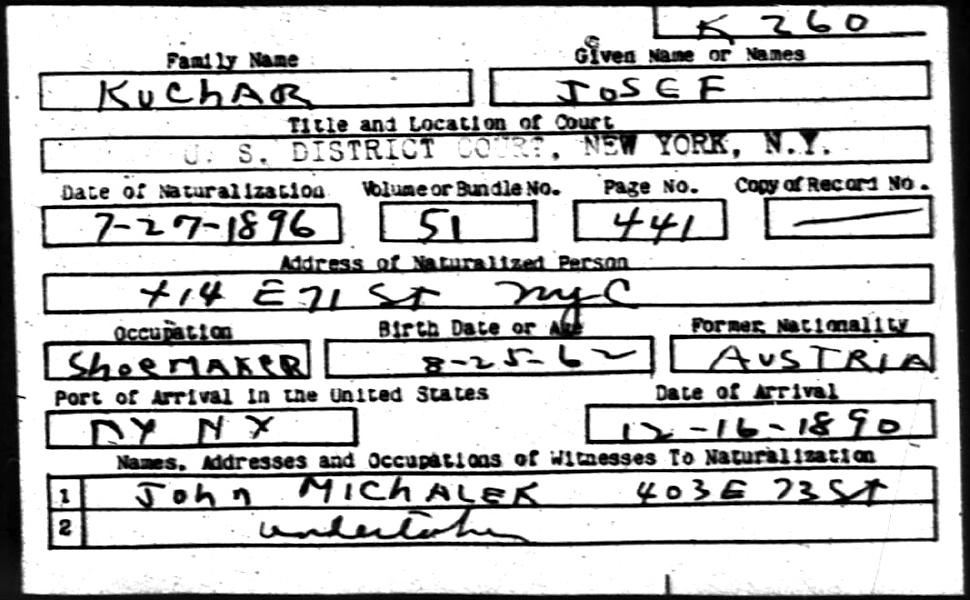 K 260
Family Name Given Name or Names
KUChAR JOSEF
Title and Location of Court
U. S. DISTRICT COURT, NEW YORK, N.Y.
Date of Naturalization Volume or Bundle No. Page No. Copy of Record No.
7-27-1896 51 441 —
Address of Naturalized Person
414 E 71 St NYC
Occupation Birth Date or Age Former Nationality
ShoeMAKeR 8-25-62 AUSTRIA
Port of Arrival in the United States Date of Arrival
NY NY 12-16-1890
Names, Addresses and Occupations of Witnesses To Naturalization
1 John MIChALEK 403 E 73 St
2 undertaker